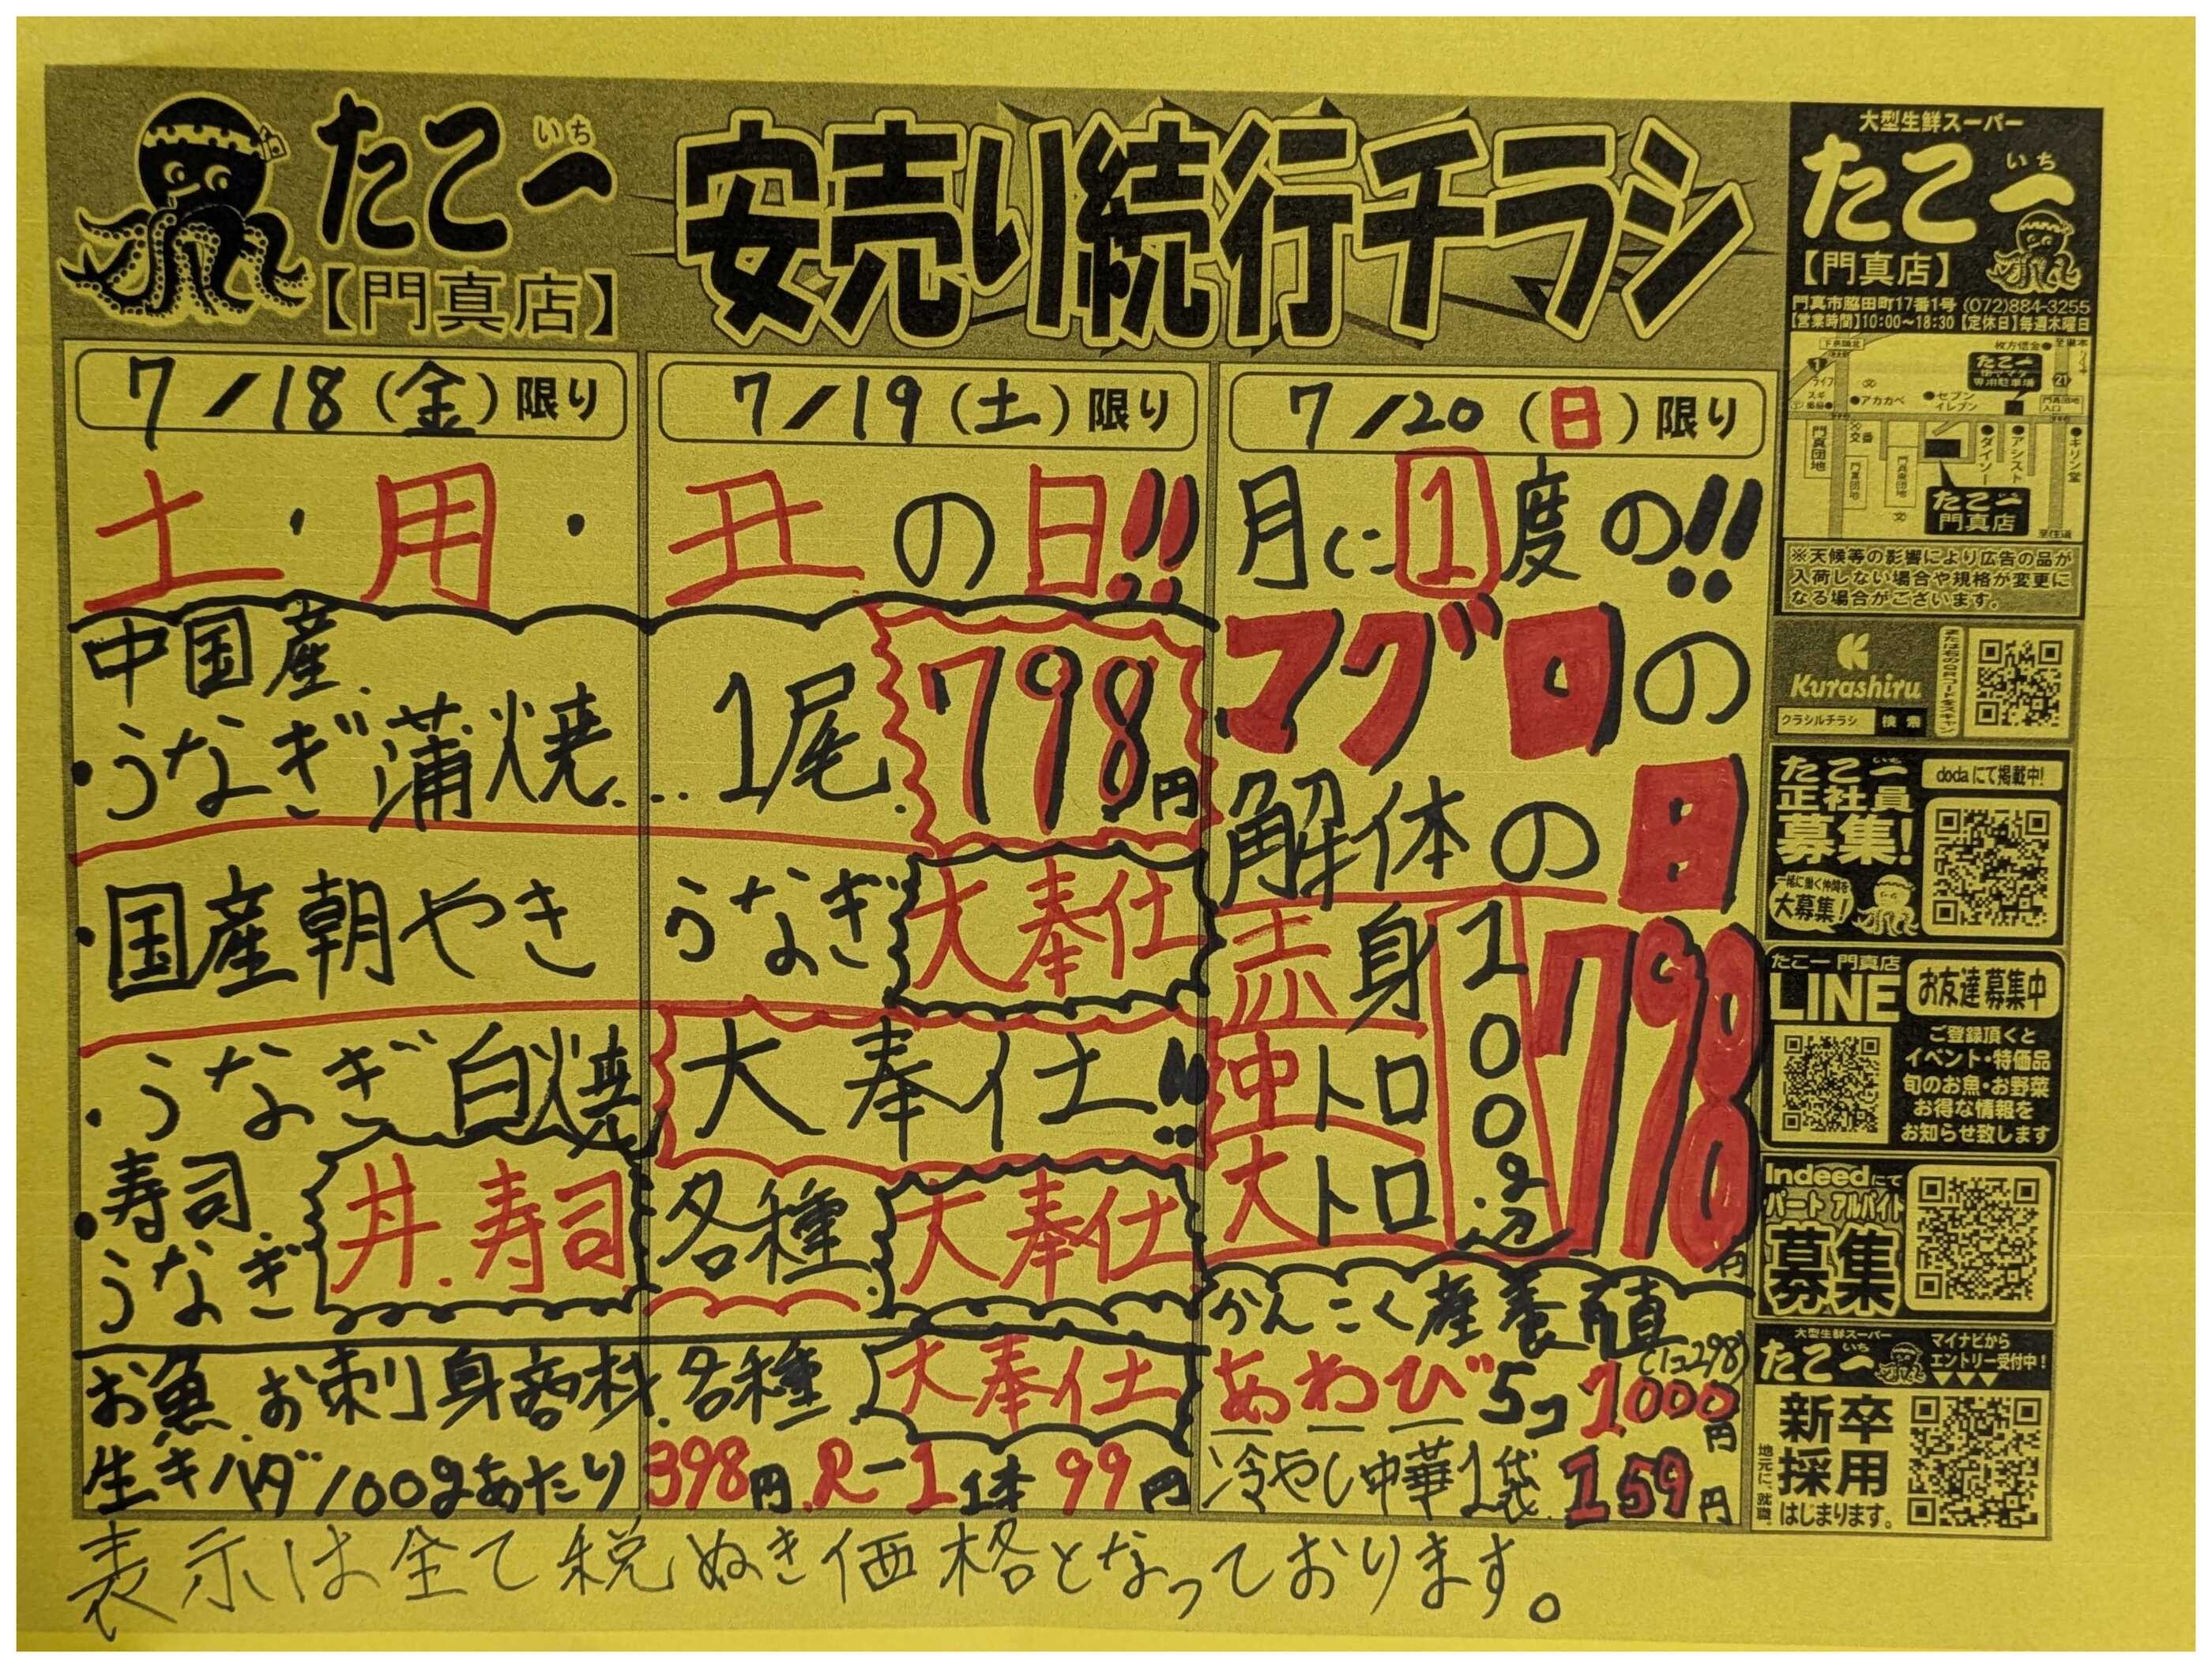 たこ一
いち
【門真店】
安売り続行チラシ
7/18（金）限り
7/19（土）限り
土・用・丑の日!!
中国産
・うなぎ蒲焼…1尾 798円
・国産朝やき うなぎ 大奉仕
・うなぎ白焼 大奉仕!!
・寿司
うなぎ 丼.寿司 各種 大奉仕
お魚.お刺身商材.各種 大奉仕
生キハダ 100gあたり 398円.R-1 1本 99円
7/20（日）限り
月に1度の!!
マグロの
解体の日
赤身
中トロ
大トロ
100g込
798円
かんこく産養殖
(1コ298)
あわび 5コ 1000円
冷やし中華1袋 159円
表示は全て税ぬき価格となっております。
大型生鮮スーパー
たこ一
いち
【門真店】
門真市脇田町17番1号 (072)884-3255
【営業時間】10:00～18:30【定休日】毎週木曜日
枚方信金
たこ一
専用駐車場
1
21
ライフ
スギ
アカカベ
セブン
イレブン
門真団地
入口
交番
門真団地
ダイソー
アシスト
キリン堂
たこ一
門真店
至住道
※天候等の影響により広告の品が
入荷しない場合や規格が変更に
なる場合がございます。
Kurashiru
クラシルチラシ 検索
または右のQRコードをスキャン
たこ一
いち
正社員
募集!
dodaにて掲載中!
一緒に働く仲間を
大募集!
たこ一 門真店
LINE
お友達募集中
ご登録頂くと
イベント・特価品
旬のお魚・お野菜
お得な情報を
お知らせ致します
Indeedにて
パート アルバイト
募集
大型生鮮スーパー
たこ一
いち
マイナビから
エントリー受付中!
▼▼▼
新卒
採用
はじまります。
地元に、就職。